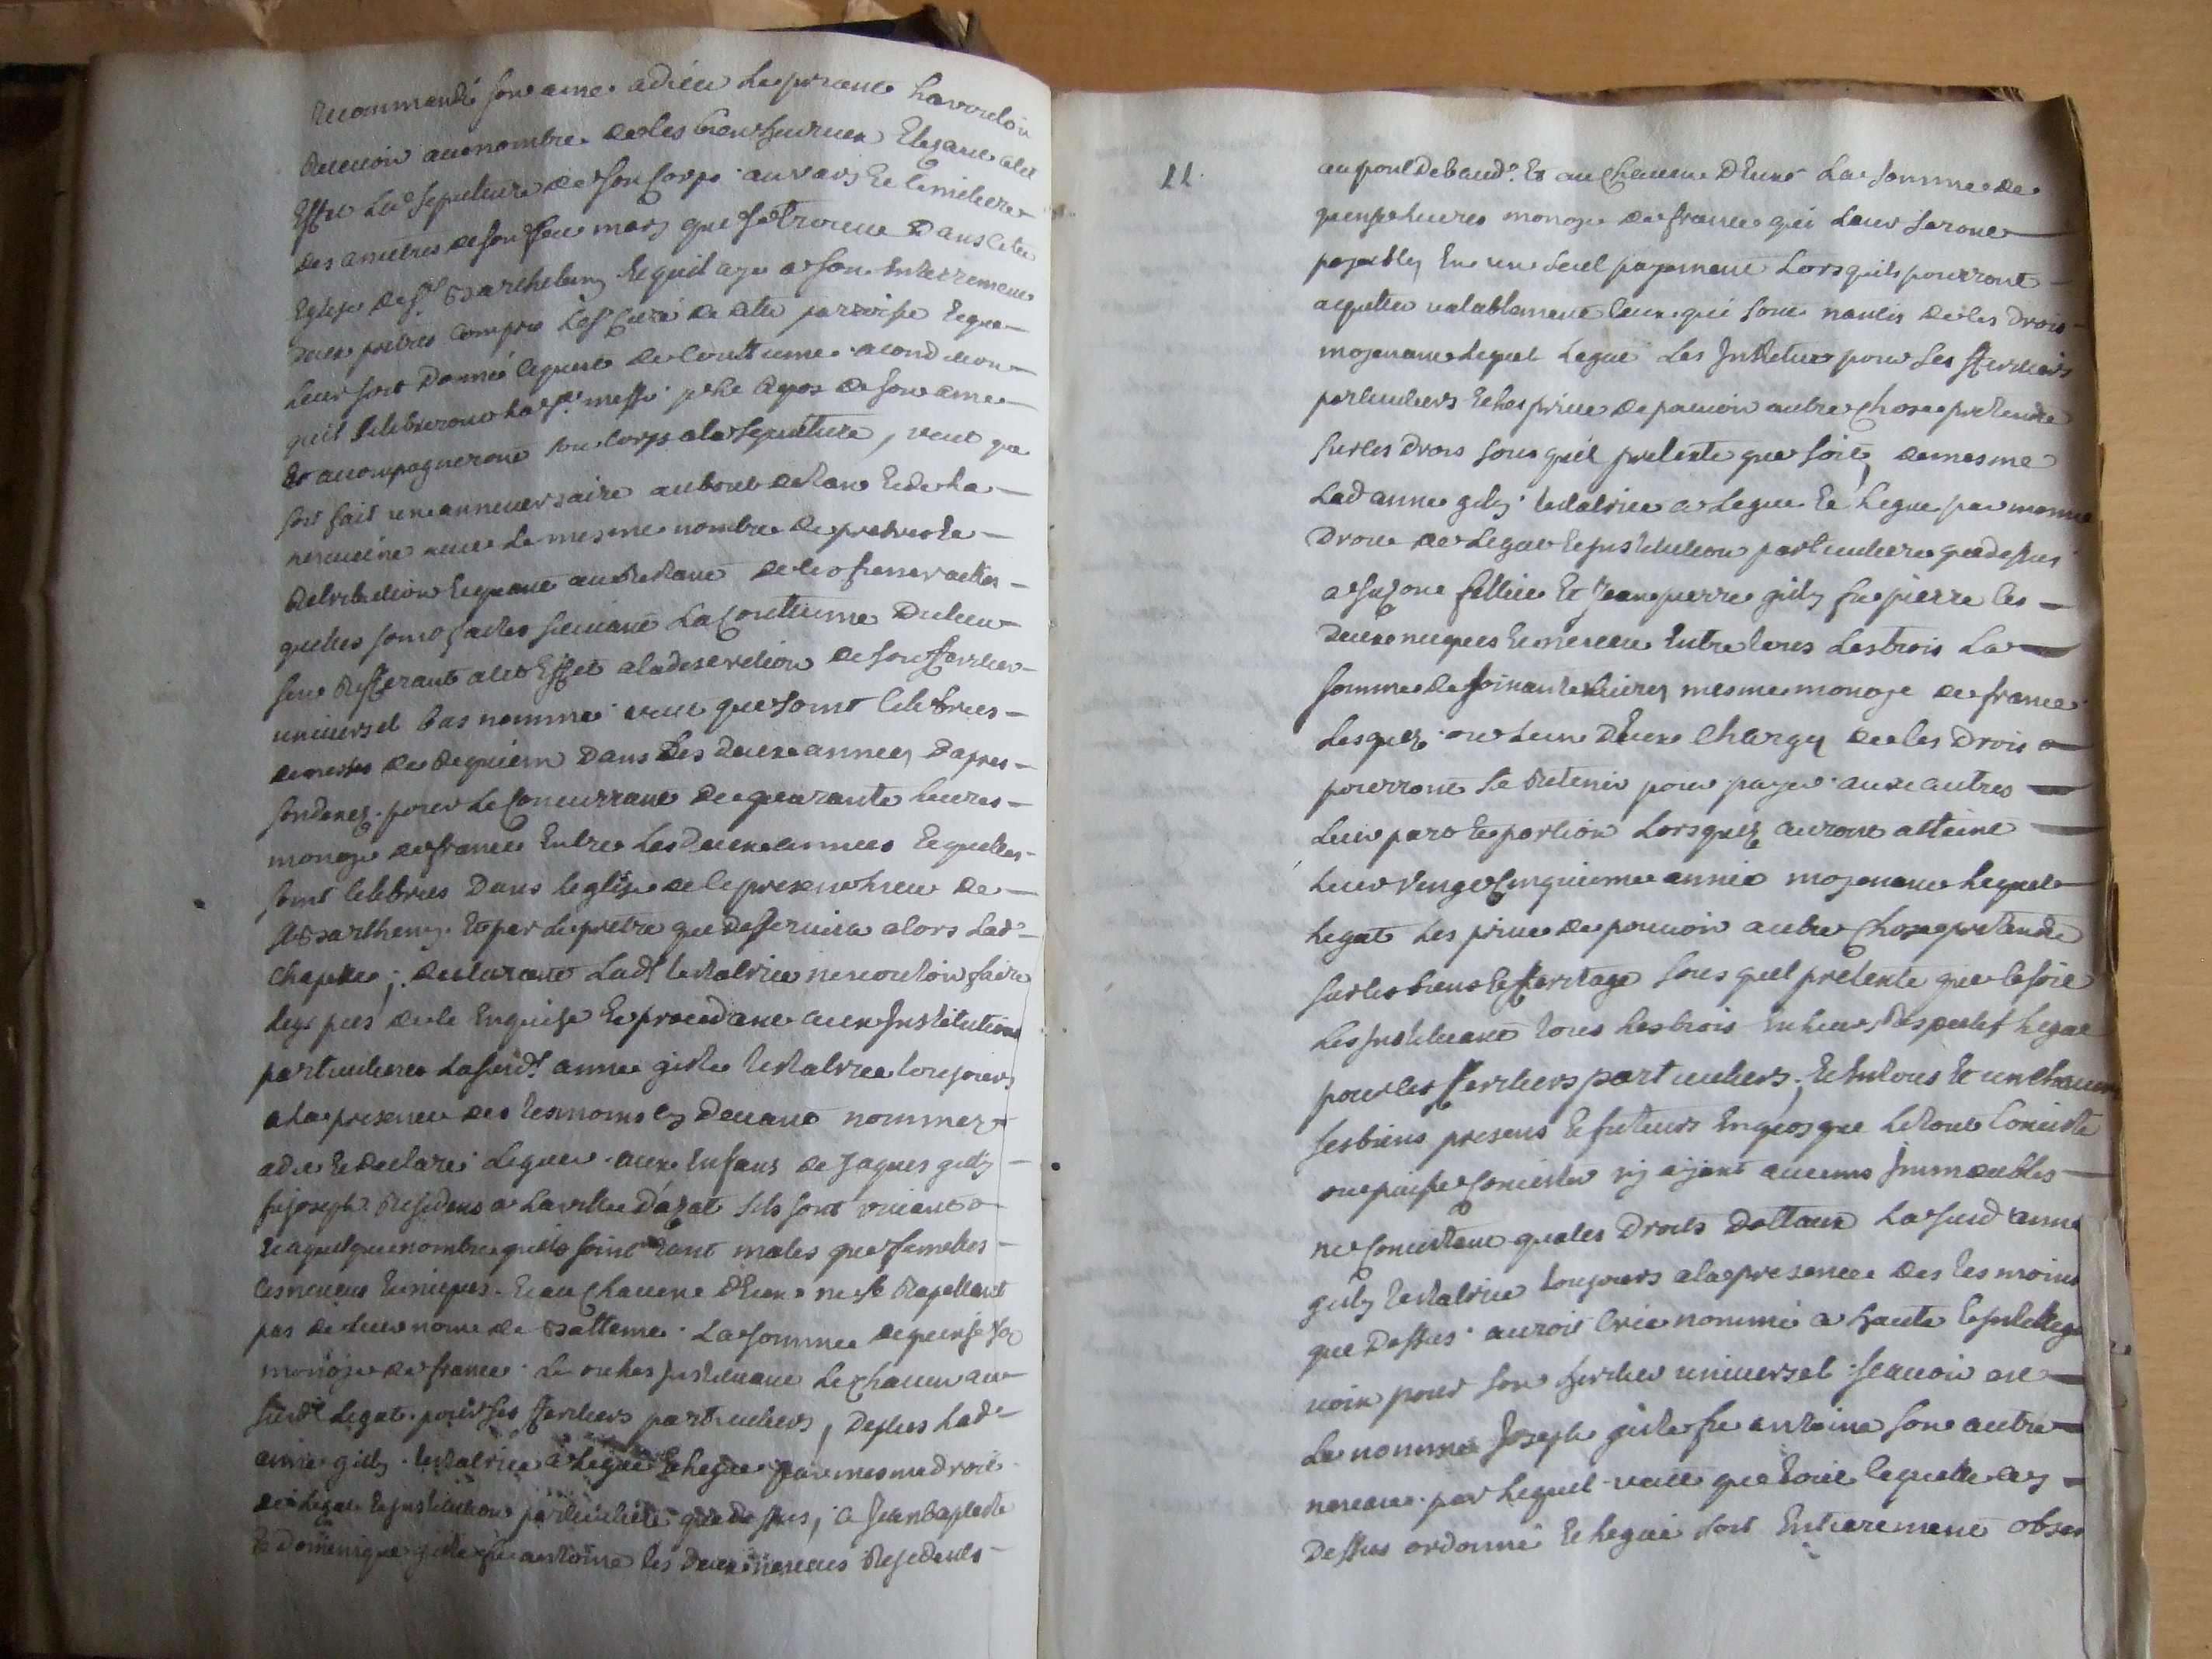 recommandé son ame a dieu le priant la vouloir
recevoir au nombre de ses bien heureux Elisant a cet
Effet La sepulture de son Corps au vas Et Cimetiere
des ancetres de son feu mary que se trouve Dans cette
Eglise de St Barthelemy Et quil aye a son Enterrement
deux pretres Compris le Sr Curé de cette parroisse Et que
leur soit Donné de Coutume a condition
quil Celebreront la Ste messe pr le repos de son ame
Et acompagneront son Corps a la sepulture, veut que
soit fait un anniversaire au bout de lan Et de la
neuveine avec Le mesme nombre de pretres Et
retribution Et quant au Restant de les
quelles soint faites suivant La Coutume Du lieu
sen Refferant a cet Effet a la discretion de son heretier
universel bas nommé veut que soint Celebrées
de messes de Requiem Dans Les deux années Dapres
son deces pour Le Concurrant de quarante livres
monoye de france Entre Les Deux années Et quelles
soint Celebrées Dans leglise de le present lieu de
St Barthemy Et par le pretre que desservira alors Lade
Chapelle; declarant Lade testatrice ne vouloir faire
legs pies de ce Enquise Et procedant aux Institutions
particulieres La sude anne gille testatrice toujours
a la presence des tesmoins Cy devant nommez
a dit Et declaré Leguer aux Enfans de Jaques gilly
fu joseph Residens a La ville Dazat sils sont vivants
Et a quelque nombre quils soint tant males que femelles
ses neveus Et niepces Et au Chacun dEux ne se Rapellant
pas de Leur nom de Batteme La somme de quinse
monoye de france Le ou les Instituant Le Chacun au
susd Legat pour ses heretiers particuliers, De plus Lade
anne gilly testatrice a Legué Et legue par mesme droit
de Legat Et Institution particuliere que dessus, a Jean baptiste
Et Dominique gille fu antoine ses Deux neveus Residents
11.
au pont De baud. Et au Chacun DEux La somme de
quinse livres monoye de france qui Leur seront
payables En un seul payement Lorsquils pourront
aquitter valablement Ceux qui sont nantis de ses Drois
moyenant lequel Legat Les Institue pour Ses herretiers
particuliers Et les prive de pouvoir autre Chose pretendre
sur ses Drois sous quel pretexte que soit, de mesme
Lad anne gilly testatrice a Legué Et Legue par mesme
Droit de Legat Et Institution particuliere que dessus
a fellice Et Jean pierre gilly fu pierre ses
deux niepces Et neveu Entre tous Les trois La
somme de soixante Livres mesme monoye de france
Lesquels ou Lun DEux Charges de ses Drois
pourront se Retenir pour payer aux autres
Leur part Et portion Lorsquils auront atteint
leur vingt Cinquieme année moyenant lequel
legat Les prive de pouvoir autre Chose pretendre
sur ses biens Et heritage sous quel pretexte que ce soit
Les Instituant tous les trois En leur Respectif legat
pour ses herretiers particuliers, Et En tous Et un Chacun
ses biens presens Et futeurs En quoy que Le tout Conciste
ou puisse Concister ny ayant aucuns Immeubles
ne Concistant qua ses Droits Dottaux La susd anne
gilly testatrice toujours a la presence des tesmoins
que Dessus auroit Crée nommé a haute Et
voix pour son herretier universel sçavoir est
Le nommé Joseph gille fu antoine son autre
neveu par Lequel veut que tout ce quelle a cy
Dessus ordonné Et legué soit Entierement obser